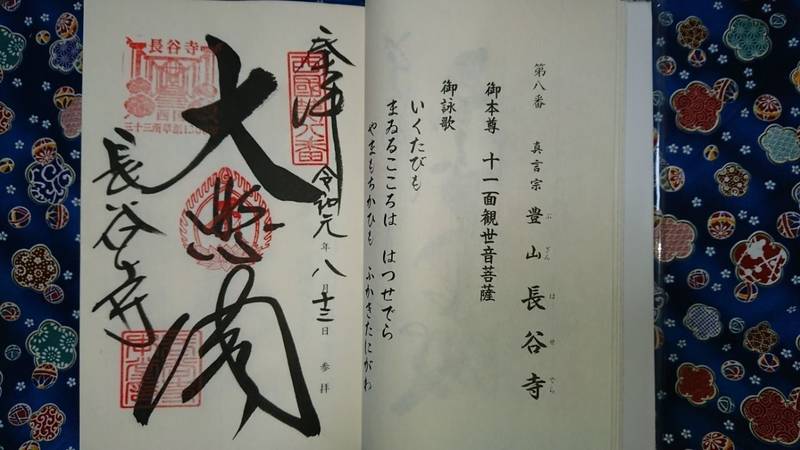 第八番 真言宗 豊山 長谷寺
ぶざん はせでら
御本尊 十一面観世音菩薩
御詠歌
いくたびも
まゐるこころは はつせでら
やまもちかひも ふかきたにがわ
奉拝
西國八番
令和元年 八月十三日 参拝
大悲閣
長谷寺
長谷寺